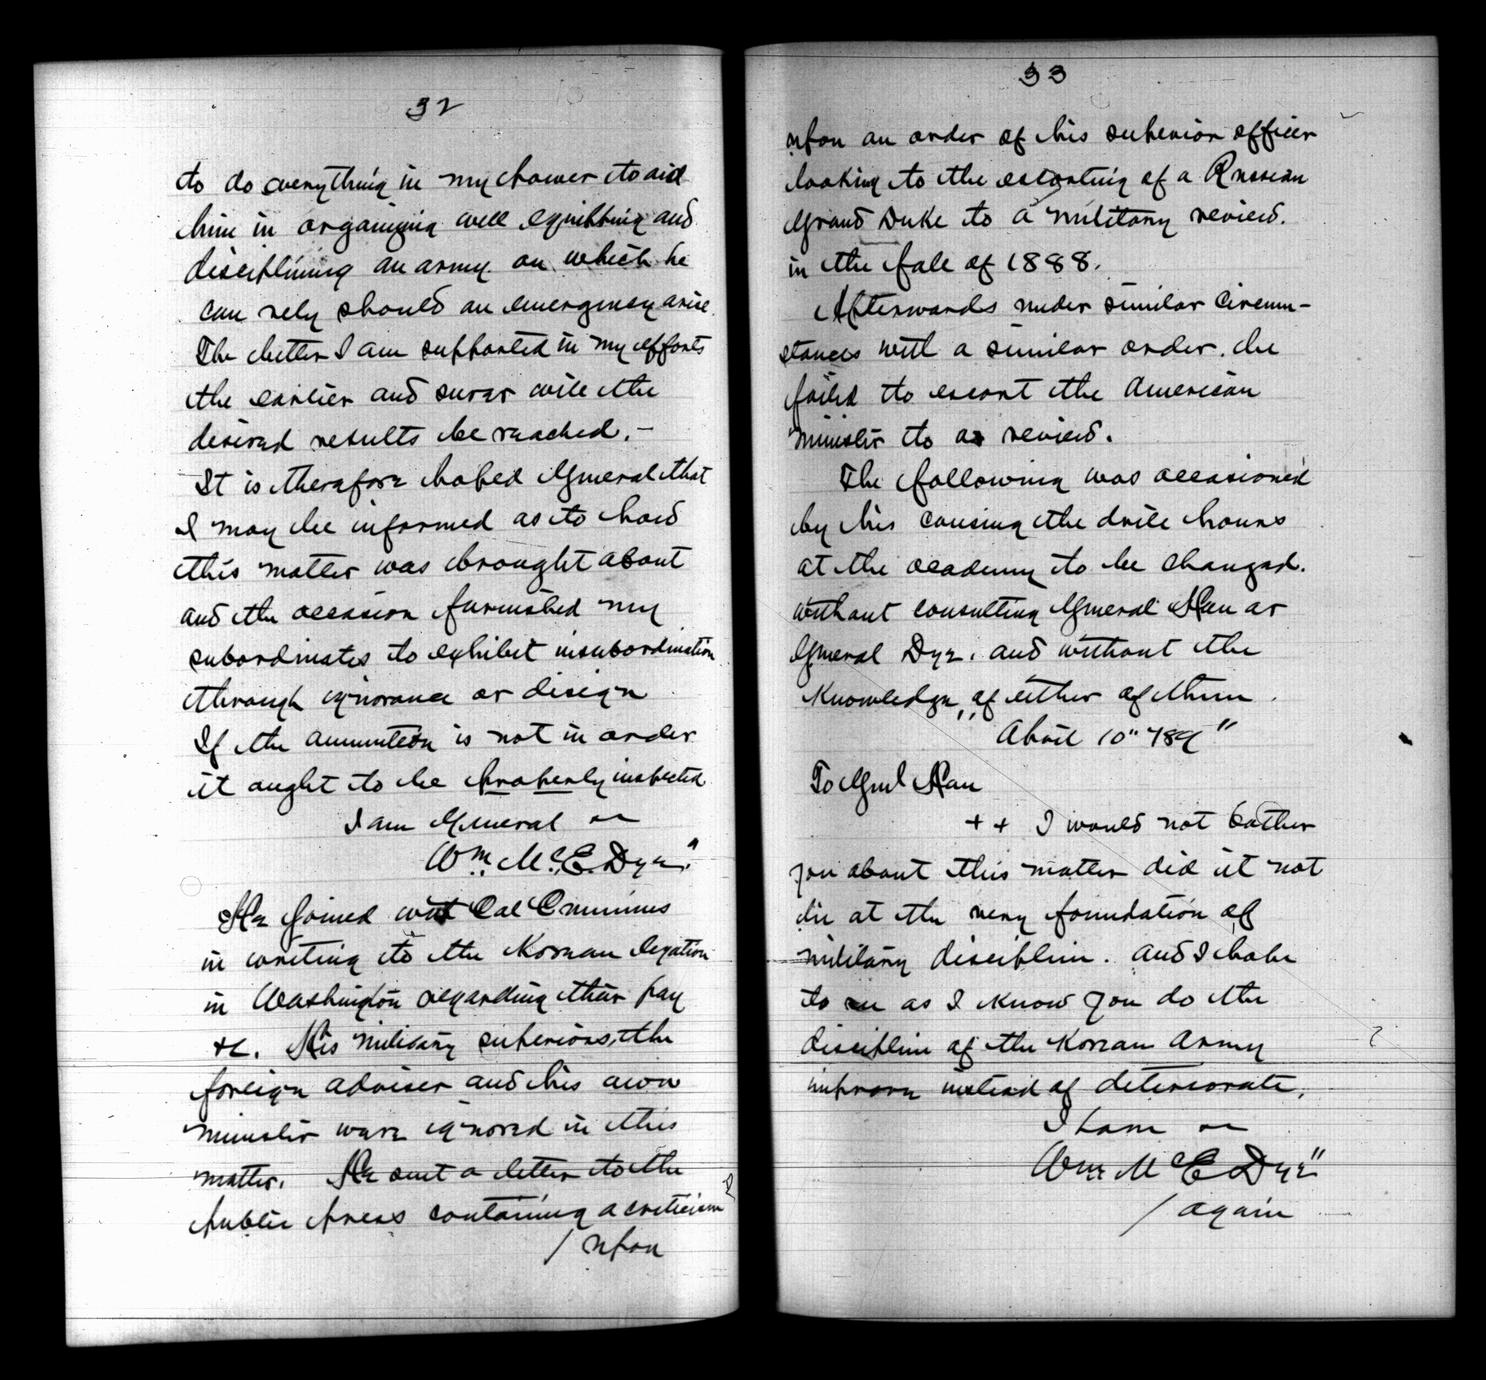 32
to do everything in my power to aid
him in organizing well equipping and
disciplining an army on which he
can rely should an emergency arise.
The better I am supported in my efforts
the earlier and surer will the
desired results be reached. –
It is therefore hoped General that
I may be informed as to how
this matter was brought about
and the occasion furnished my
subordinates to exhibit insubordination
through ignorance or design
If the ammunition is not in order
it ought to be properly inspected
I am General
Wm. Mc.E. Dye."
He joined with Col Cummins
in writing to the Korean legation
in Washington regarding their pay
&c. His military superiors, the
foreign adviser and his own
minister were ignored in this
matter. He sent a letter to the
public press containing a criticism
/ upon
33
upon an order of his superior officer
looking to the escorting of a Russian
Grand Duke to a military review.
in the fall of 1888.
Afterwards under similar circum-
stances with a similar order. he
failed to escort the American
minister to a review.
The following was occasioned
by his causing the drill hours
at the academy to be changed.
without consulting General Han or
General Dye. and without the
knowledge of either of them.
"April 10" '89"
To Genl Han
+ + I would not bother
you about this matter did it not
lie at the very foundation of
military discipline. and I hope
to see as I know you do the
discipline of the Korean Army
improve instead of deteriorate.
I am
Wm McE Dye"
/ again